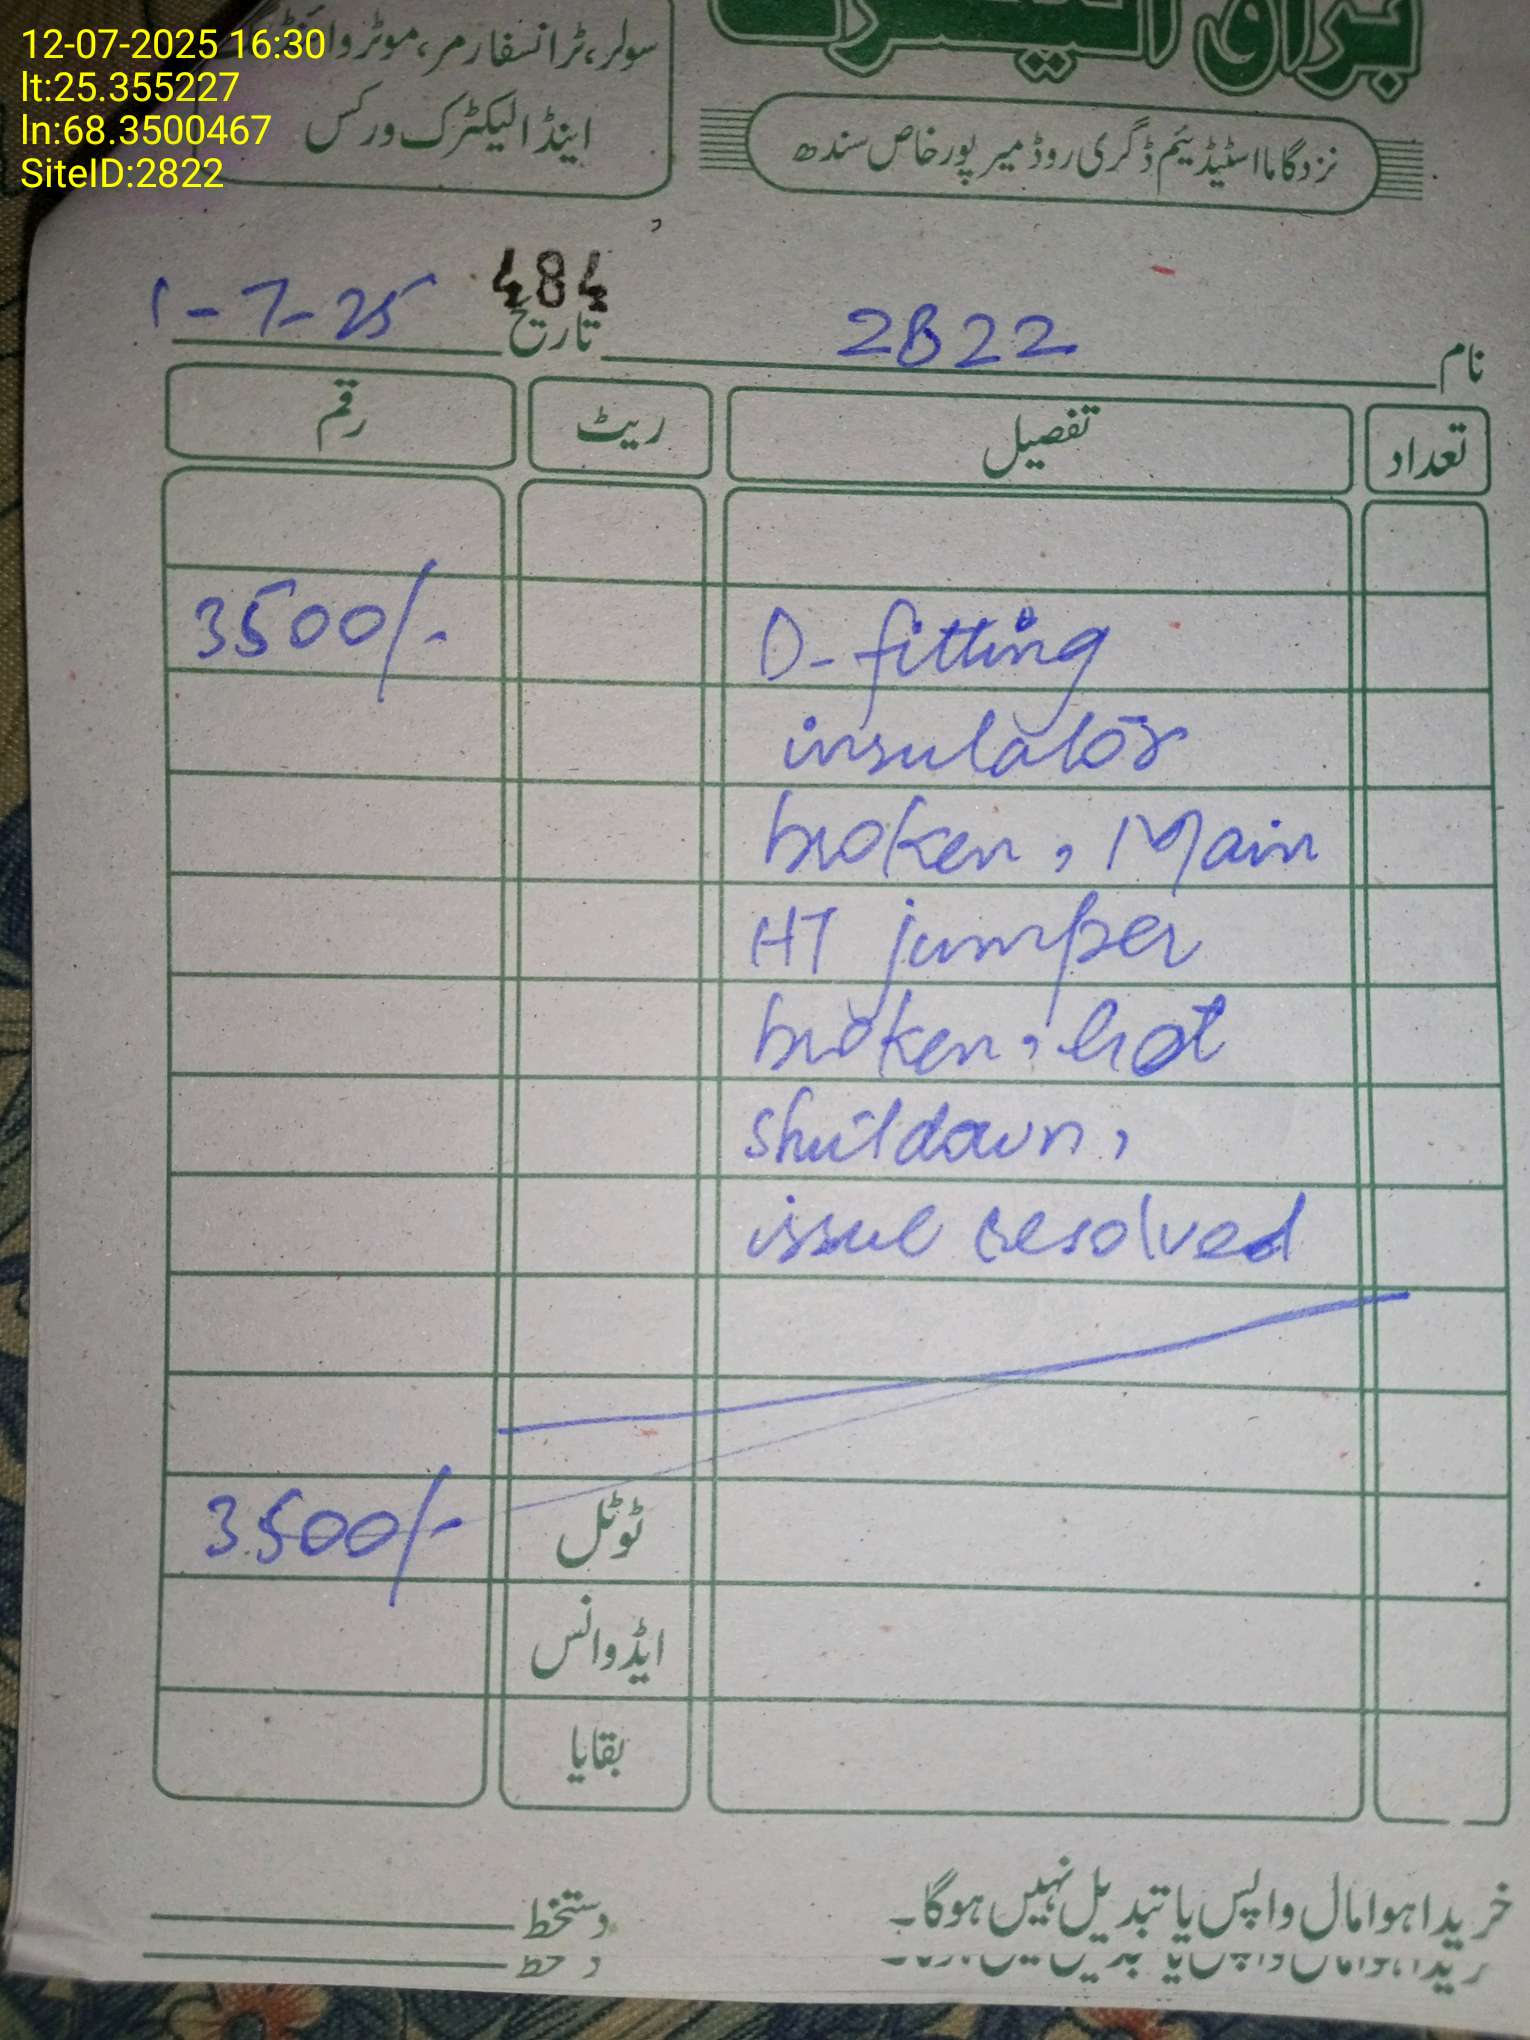 12-07-2025 16:30
lt:25.355227
ln:68.3500467
SiteID:2822
براق الیکٹرک
سولر، ٹرانسفارمر، موٹر وائنڈنگ
اینڈ الیکٹرک ورکس
نزد گاما اسٹیڈیئم ڈگری روڈ میرپورخاص سندھ
484
نام 2822 تاریخ 1-7-25
تعداد تفصیل ریٹ رقم
D-fitting 3500/-
insulator
broken, Main
HT jumper
broken, hot
shutdown,
issue resolved
ٹوٹل 3500/-
ایڈوانس
بقایا
خریدا ہوا مال واپس یا تبدیل نہیں ہوگا۔
دستخط